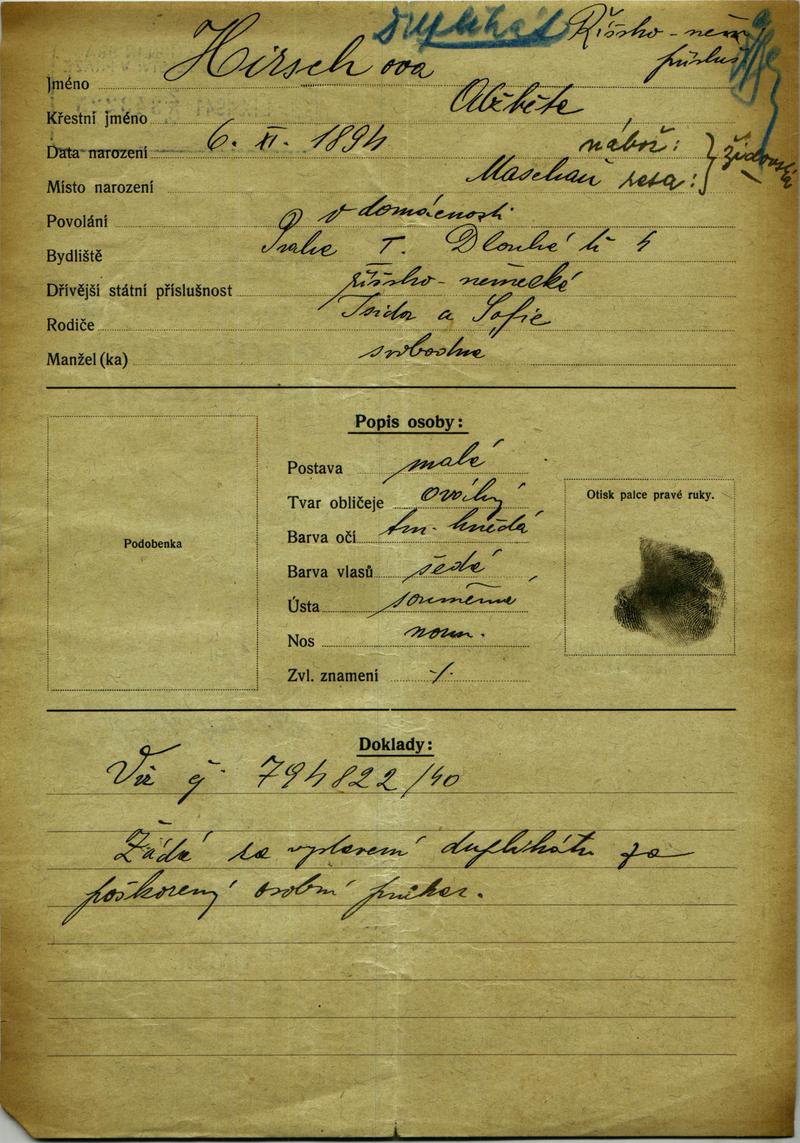 Duplikát
Říšsko-něm.
přísluš
Jméno Hirsch ova
Křestní jméno Alžběta
Data narození 6. XI. 1894 nábož: } židovská
Místo narození Maschau rasa:
Povolání v domácnosti
Bydliště Praha I. Dlouhá tř 4
Dřívější státní příslušnost říšsko-německé
Rodiče Isidor a Sofie
Manžel (ka) svobodná
Popis osoby:
Postava malá
Tvar obličeje oválný
Barva očí tm. hnědá
Barva vlasů šedé
Ústa souměrná
Nos norm.
Zvl. znamení -/-
Podobenka
Otisk palce pravé ruky.
Doklady:
Viz č. 794822/40
Žádá za vystavení duplikátu za
poškozený osobní průkaz.